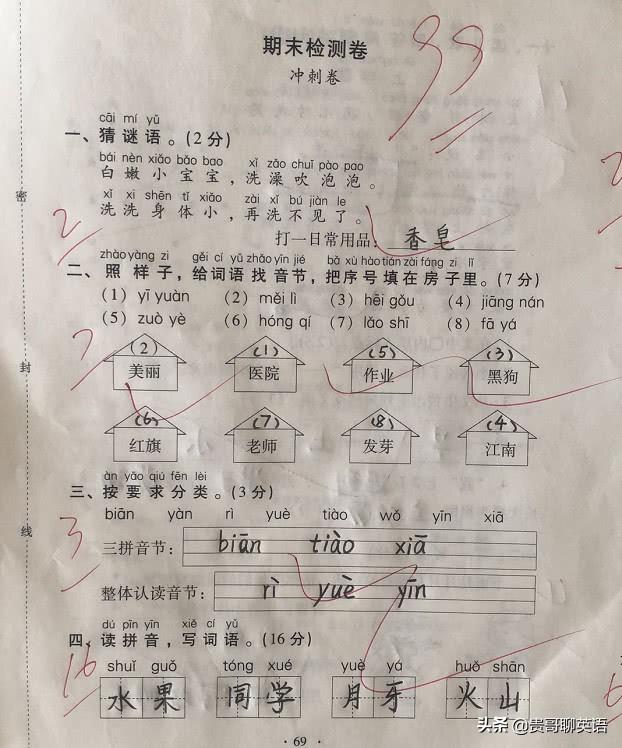 期末检测卷
冲刺卷
98
cāi mí yǔ
一、猜谜语。(2分)
bái nèn xiǎo bǎo bao xǐ zǎo chuī pào pao
白嫩小宝宝，洗澡吹泡泡。
xǐ xi shēn tǐ xiǎo zài xǐ bú jiàn le
洗洗身体小，再洗不见了。
2
打一日常用品：香皂
zhào yàng zi gěi cí yǔ zhǎo yīn jié bǎ xù hào tián zài fáng zi lǐ
二、照样子，给词语找音节，把序号填在房子里。(7分)
(1) yī yuàn (2) měi lì (3) hēi gǒu (4) jiāng nán
(5) zuò yè (6) hóng qí (7) lǎo shī (8) fā yá
7
(2) (1) (5) (3)
美丽 医院 作业 黑狗
(6) (7) (8) (4)
红旗 老师 发芽 江南
àn yāo qiú fēn lèi
三、按要求分类。(3分)
biān yàn rì yuè tiào wǒ yīn xiā
3
三拼音节： biān tiào xiā
整体认读音节： rì yuè yīn
dú pīn yīn xiě cí yǔ
四、读拼音，写词语。(16分)
16
shuǐ guǒ tóng xué yuè yá huǒ shān
水果 同学 月牙 火山
· 69 ·
密
封
线
头条 @贵哥聊英语